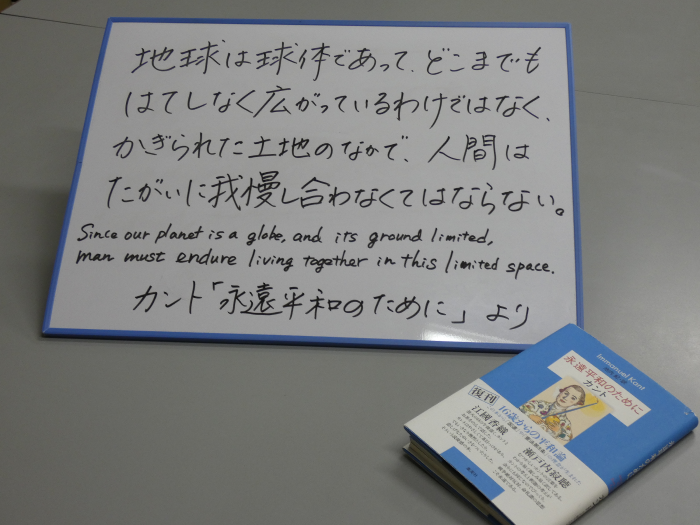 地球は球体であって、どこまでも
はてしなく広がっているわけではなく、
かぎられた土地のなかで、人間は
たがいに我慢し合わなくてはならない。
Since our planet is a globe, and its ground limited,
man must endure living together in this limited space.
カント「永遠平和のために」より
Immanuel Kant
永遠平和のために
カント
復刊
16歳からの平和論
江國香織
瀬戸内寂聴